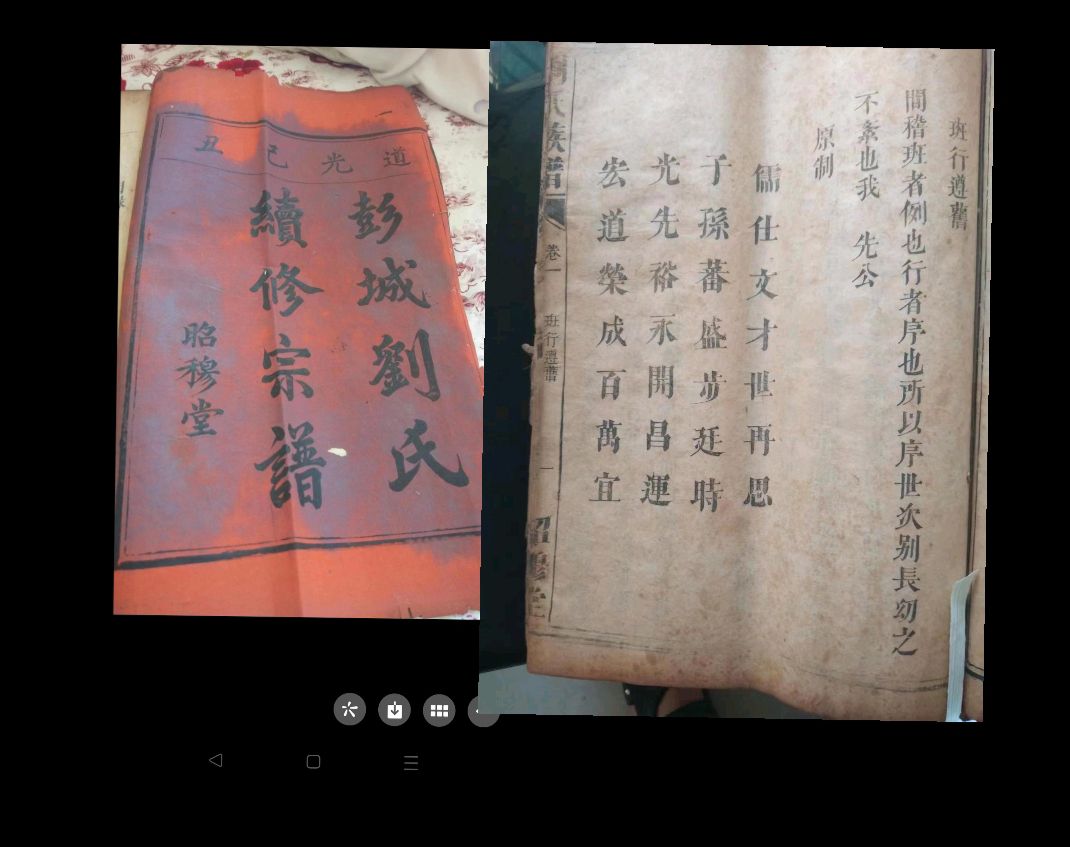 道光己丑
彭城劉氏
續修宗譜
昭穆堂
班行遵舊
間稽班者例也行者序也所以序世次别長幼之
不紊也我 先公
原制
儒仕文才世再思
子孫蕃盛步廷時
光先裕永開昌運
宏道榮成百萬宜
族譜
卷一
班行遵舊
一
昭穆堂